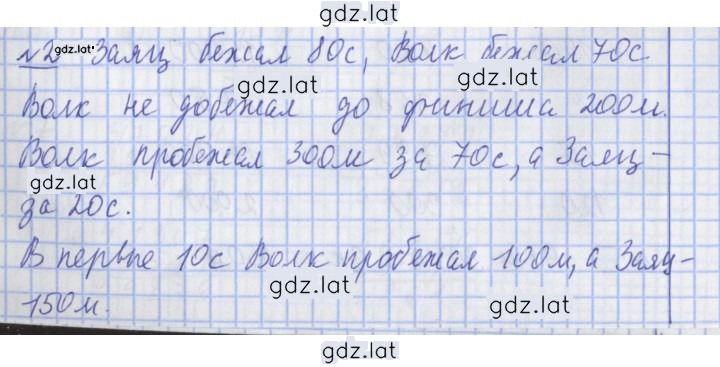 gdz.lat
№2 gdz.lat Заяц бежал 80с, Волк бежал 70с
gdz.lat gdz.lat
Волк не добежал до финиша 200м.
Волк пробежал 300м за 70с, а Заяц -
gdz.lat gdz.lat
за 20с.
В первые 10с Волк пробежал 100м, а Заяц -
gdz.lat gdz.lat
150м.
gdz.lat